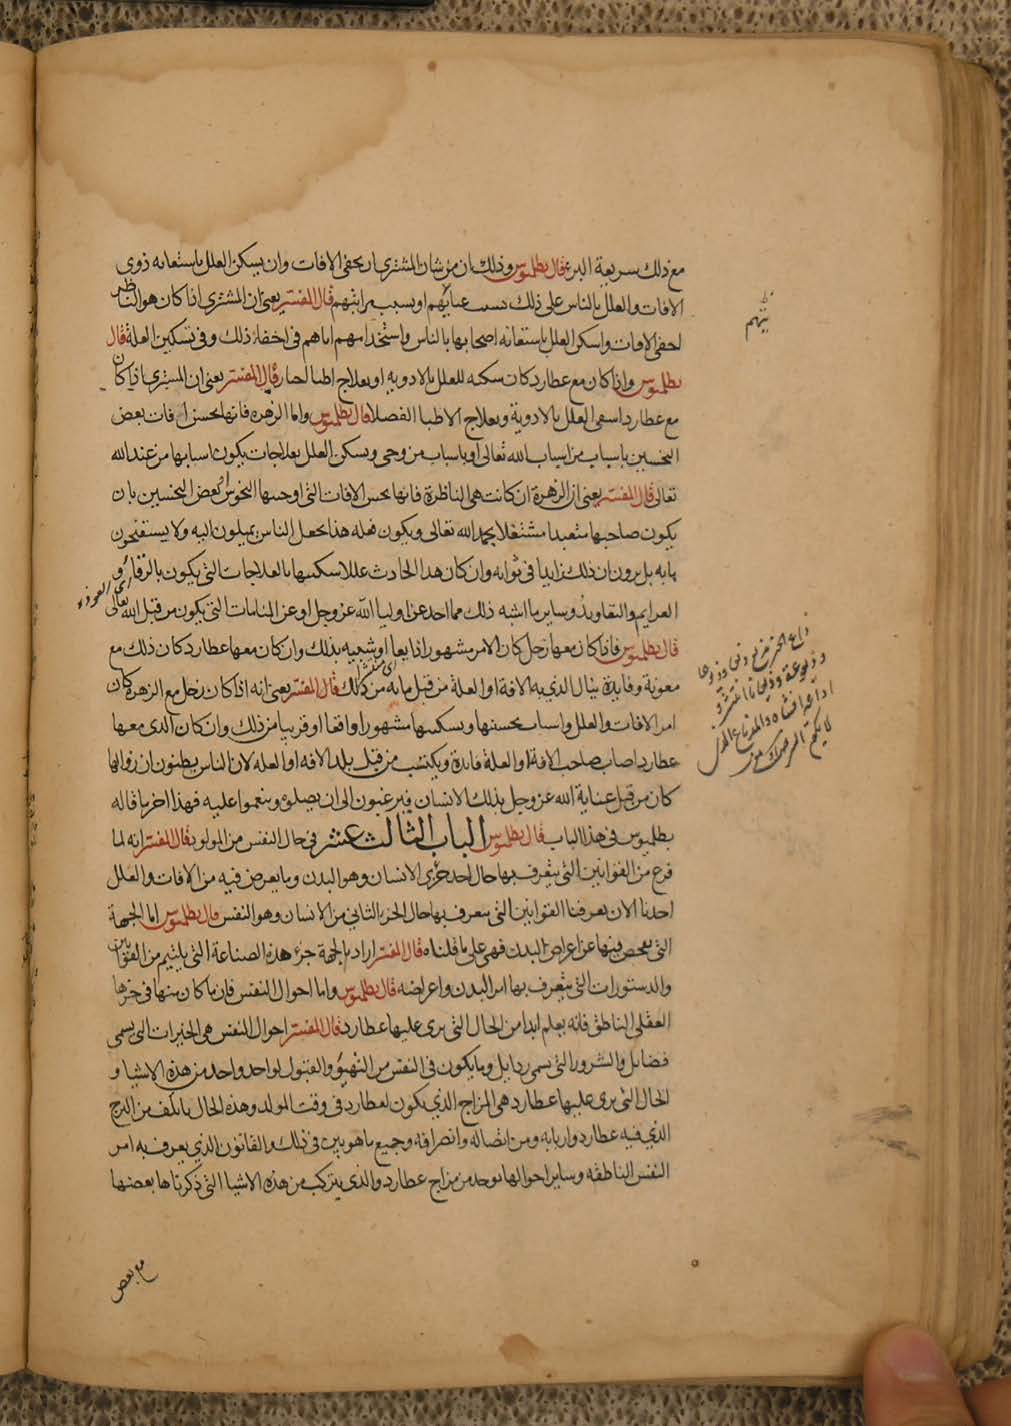 مع ذلك سريعة البرء قال بطلميوس وذلك ان من شان المشتري ان يخفى الافات وان يسكن العلل باستعانه ذوى
الافات والعلل بالناس على ذلك بسبب عنايتهم او بسبب مراتبهم قال المفسر يعنى ان المشترى اذا كان هو الناظر
اخفى الافات واسكن العلل باستعانه اصحابها بالناس واستخدامهم اياهم فى اخفاء ذلك وفى تسكين العلة قال
بطلميوس واذا كان مع عطارد كان سكنه للعلل بالادويه او بعلاج اطبا قال المفسر يعنى ان المشترى اذا كان
مع عطارد اسفى العلل بالادوية وبعلاج الاطبا الفضلا قال بطلميوس واما الزهره فانها تحسن افات بعض
النحسين باسباب من اسباب الله تعالى او باسباب من وحى وبسكن العلل بعلاجات يكون اسبابها من عند الله
تعالى قال المفسر يعنى ان الزهرة ان كانت هى الناظرة فانها تحسن الافات التى اوجبها النحوس او بعض النحسين بان
يكون صاحبها متعبدا مشتغلا بحمد الله تعالى ويكون فعله هذا يجعل الناس يميلون اليه ولا يستقبحون
مابه بل يرون ان ذلك زايدا فى ثوابه وان كان هذا الحادث عللا سكنتها بالعلاجات التى يكون بالرقا و
العزايم والتعاويذ وساير ما اشبه ذلك مما اخذ عن اوليا الله عز وجل او عن المنامات التى يكون من قبل الله تعالى
قال بطلميوس فاذا كان معها زحل كان الامر مشهورا ذايعا او شبيه بذلك وان كان معها عطارد كان ذلك مع
معونة وفايدة ينال الذى به الافة او العلة من قبل ما به من ذلك قال المفسر يعنى انه اذا كان زحل مع الزهرة كان
امر الافات والعلل واسباب تحسنها وبسكنها مشهورا واقفا او قريبا من ذلك وان كان الذى معها
عطارد اصاب صاحب الافة او العلة فايدة ويكتسب من قبل تلك الافه او العله لان الناس يظنون ان زوالها
كان من قبل عناية الله عز وجل بذلك الانسان فيرغبون الى ان يصلوه وينعموا عليه فهذا اخر ما قاله
بطلميوس فى هذا الباب قال بطلميوس الباب الثالث عشر فى حال النفس من المولود قال المفسر انه لما
فرغ من القوانين التى يتعرف بها حال احد جزئى الانسان وهو البدن وما يعرض فيه من الافات والعلل
اخذنا الان يعرفنا القوانين التى يتعرف بها حال الجزء الثانى من الانسان وهو النفس قال بطلميوس اما الجهة
التى يفحص فيها عن اعراض البدن فهى على ما قلناه قال المفسر اراد بالجهة جزء هذه الصناعة التى يلتيم من القوانين
والدستورات التى يتعرف بها امر البدن واعراضه قال بطلميوس واما احوال النفس فان ما كان منها فى جزها
العقلى الناطق فانه يعلم ابدا من الحال التى يرى عليها عطارد قال المفسر احوال النفس هى الخيرات التى يسمى
فضايل والشرور التى يسمى رذايل وما يكون فى النفس من التهيؤ والقبول لواحد واحد من هذه الاشيا و
الحال التى يرى عليها عطارد هى المزاج الذى يكون لعطارد فى وقت المولد وهذه الحال من البرج
الذي فيه عطارد واربابه ومن اتصاله وانصرافه وجميع ما هو بين فى ذلك والقانون الذي يعرف به امر
النفس الناطقه وساير احوالها يوجد من مزاج عطارد والذى يتركب من هذه الاشيا التى ذكرناها بعضها
مع بعض